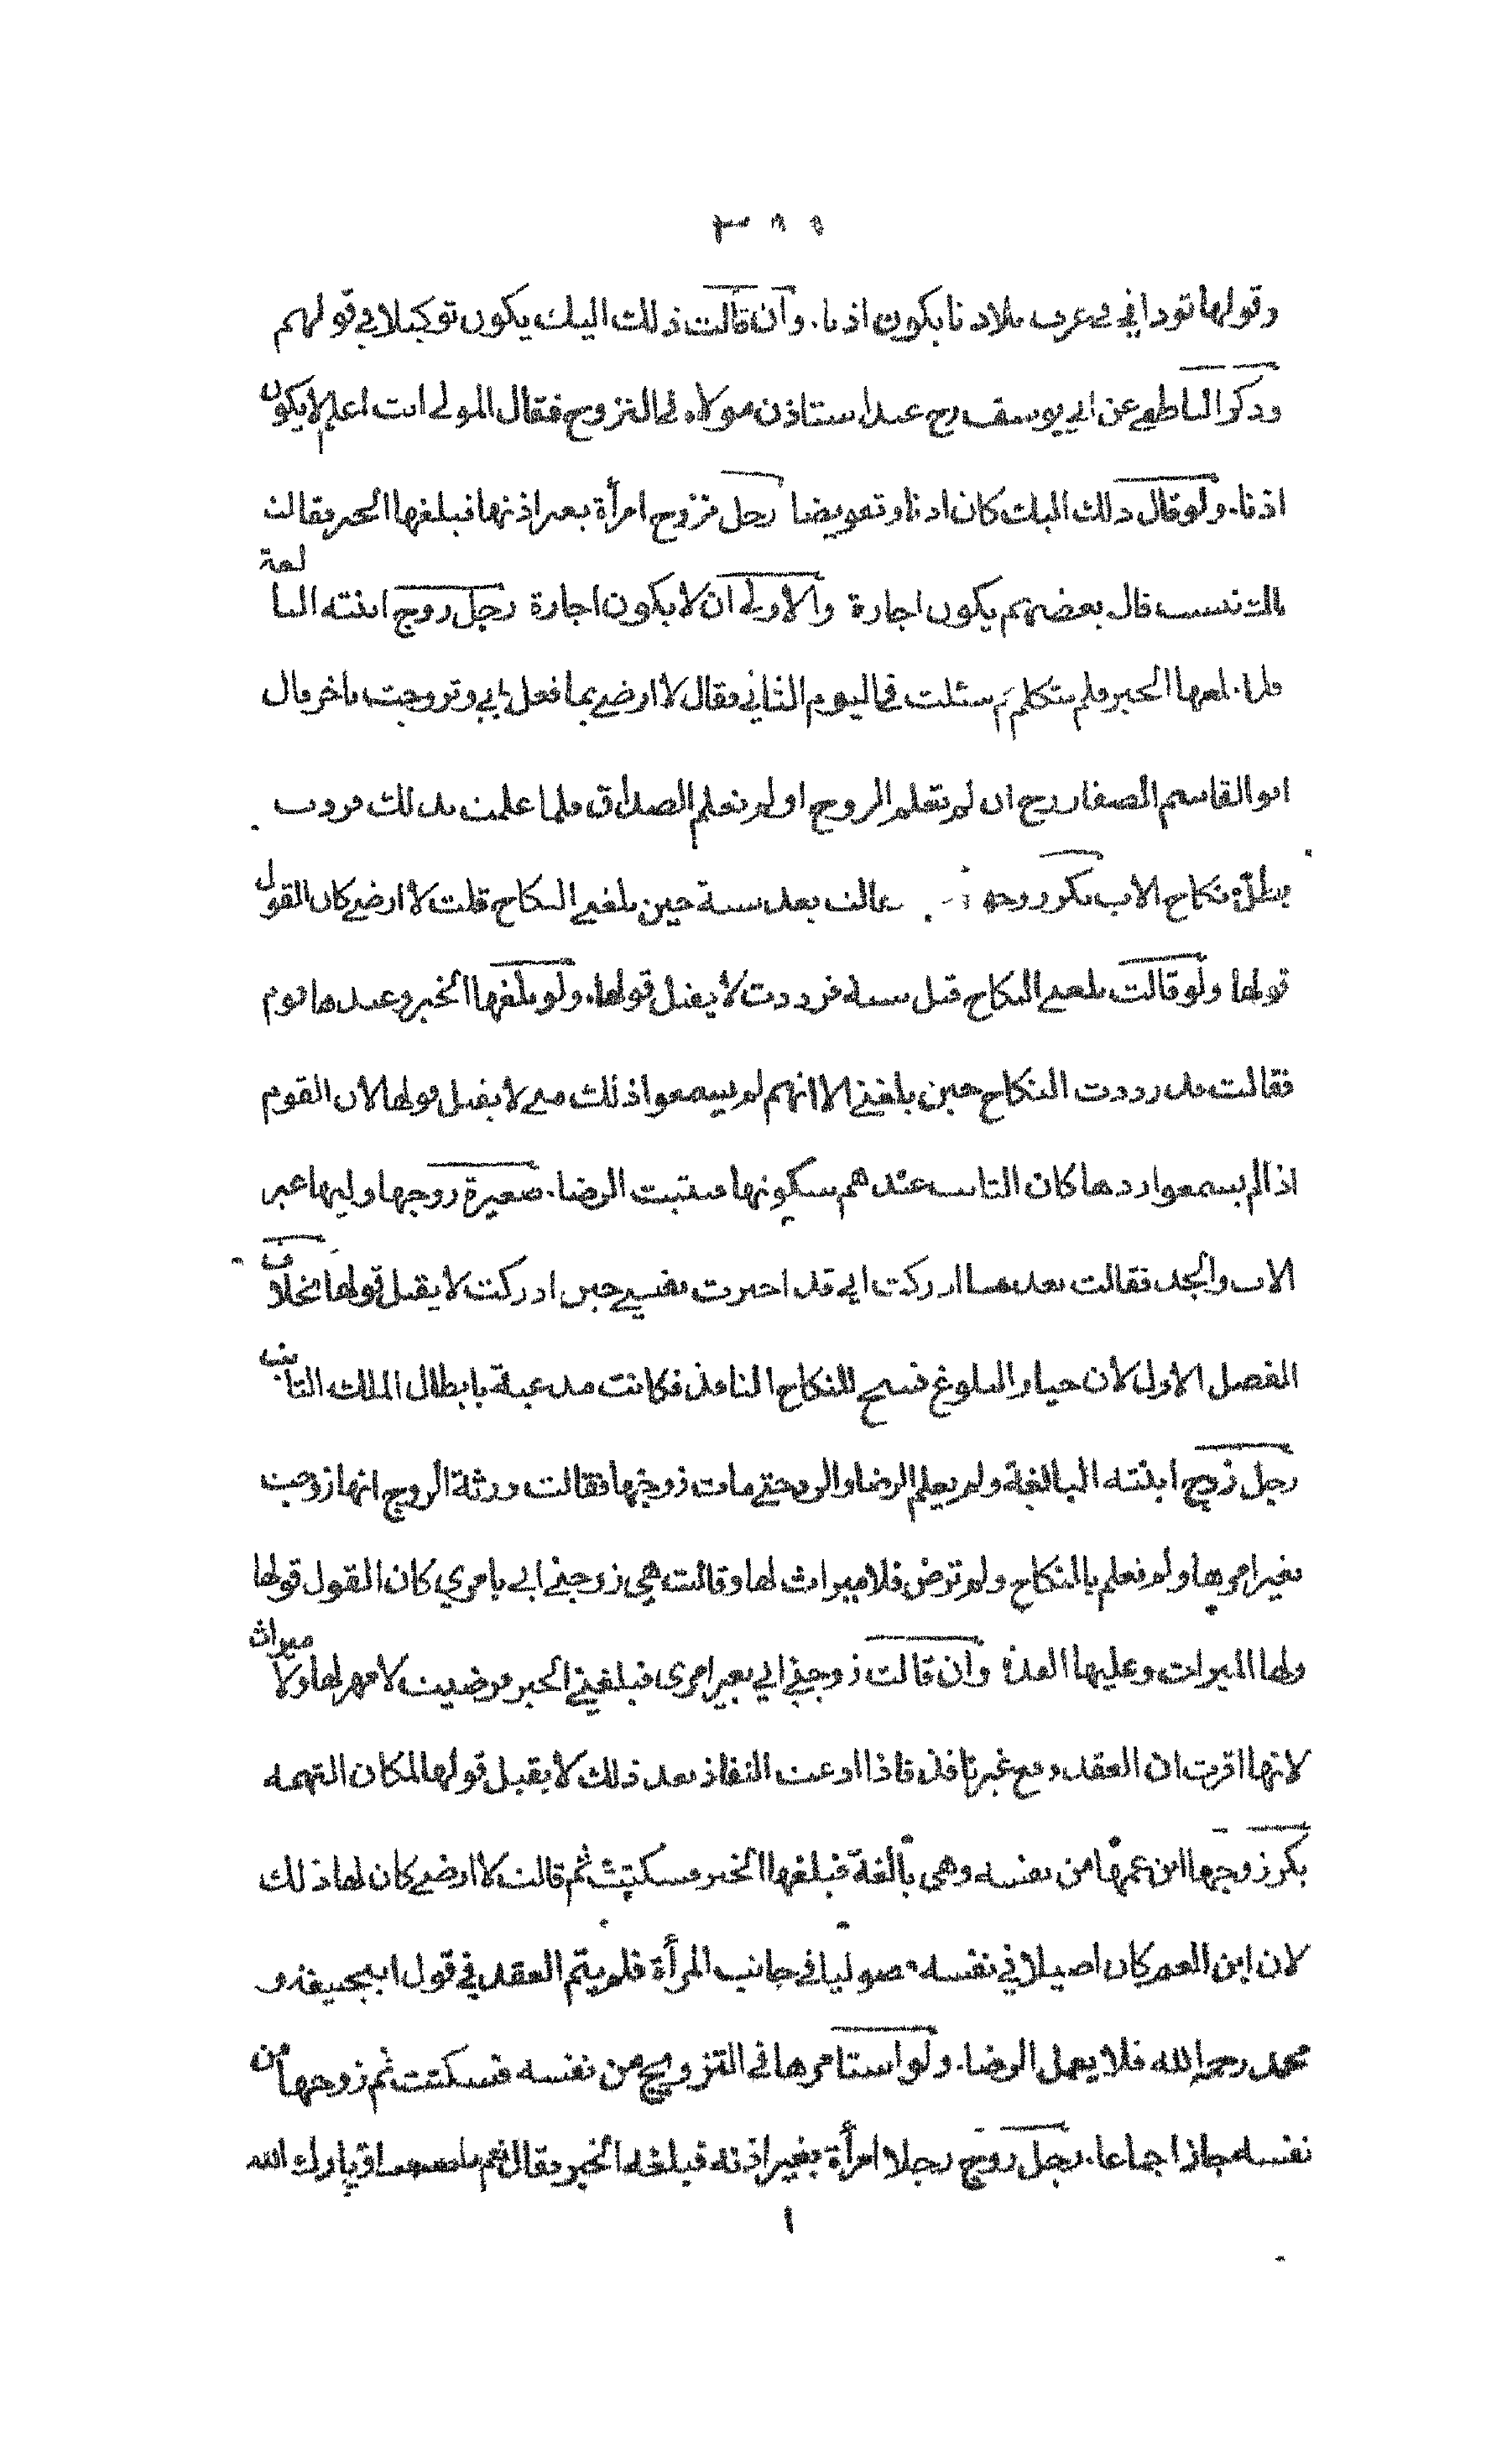 وقولها تو داني في عرف بلادنا يكون اذنا. وان قالت ذلك اليك يكون توكيلا في قولهم
وذكر الناطفي عن ابي يوسف رح عبد استاذن مولاه في التزوج فقال المولى انت اعلم لا يكون
اذنا. ولو قال ذلك اليك كان اذنا وتفويضا رجل تزوج امرأة بغير اذنها فبلغها الخبر فقالت
باك نيست قال بعضهم يكون اجازة والاولى ان لا يكون اجازة رجل زوج ابنته البالغة
فلما بلغها الخبر فلم يتكلم ثم سئلت في اليوم الثاني فقال لا ارضى بما فعل ابي وتزوجت باخر قال
ابو القاسم الصفار رح ان لم تعلم الزوج او لم تعلم الصداق فلما علمت بذلك فردت
بطل نكاح الاب بكر زوجها قالت بعد سنة حين بلغني النكاح قلت لا ارضى كان القول
قولها ولو قالت بلغني النكاح قبل سنة فرددت لا يقبل قولها. ولو بلغها الخبر وعندها قوم
فقالت قد رددت النكاح حين بلغني الا انهم لم يسمعوا ذلك مني لا يقبل قولها لان القوم
اذا لم يسمعوا ردها كان الثابت عندهم سكوتها فيثبت الرضا. صغيرة زوجها وليها غير
الاب والجد فقالت بعد ما ادركت اني قد اخترت نفسي حين ادركت لا يقبل قولها بخلاف
الفصل الاول لان خيار البلوغ فسخ للنكاح النافذ فكانت مدعية بابطال الملك الثابت
رجل زوج ابنته البالغة ولم يعلم الرضا والرد حتى مات زوجها فقالت ورثة الزوج انها زوجت
بغير امرها ولم تعلم بالنكاح ولم ترض فلا ميراث لها وقالت هي زوجني ابي بامري كان القول قولها
ولها الميراث وعليها العدة وان قالت زوجني ابي بغير امري فبلغني الخبر فرضيت لا مهر لها ولا ميراث
لانها اقرت ان العقد وقع غير نافذ فاذا ادعت النفاذ بعد ذلك لا يقبل قولها لمكان التهمة
بكر زوجها ابن عمها من نفسه وهي بالغة فبلغها الخبر فسكتت ثم قالت لا ارضى كان لها ذلك
لان ابن العم كان اصيلا في نفسه فضوليا في جانب المرأة فلم يتم العقد في قول ابيحنيفة و
محمد رحمه الله فلا يعمل الرضا. ولو استامرها في التزويج من نفسه فسكتت ثم زوجها من
نفسه جاز اجماعا. رجل زوج رجلا امرأة بغير اذنه فبلغه الخبر فقال نعم ما صنعت او بارك الله